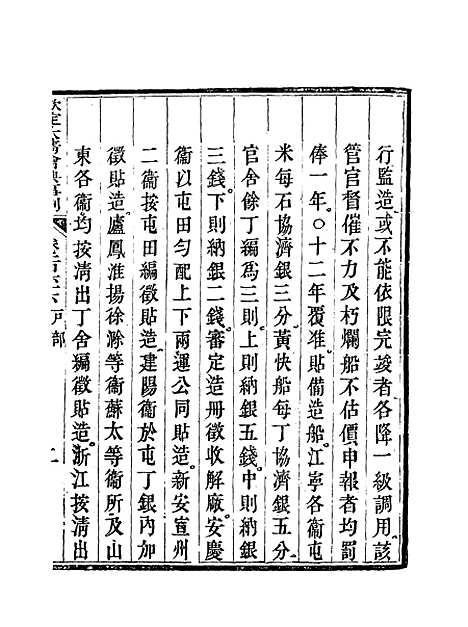 行監造或不能依限完竣者各降一級調用該
管官督催不力及朽爛船不估價申報者均罰
俸一年○十二年覆准貼備造船江寧各衞屯
米每石協濟銀三分黃快船每丁協濟銀五分
官舍餘丁編爲三則上則納銀五錢中則納銀
三錢下則納銀二錢審定造冊徵收解廠安慶
衞以屯田勻配上下兩運公同貼造新安宣州
二衞按屯田編徵貼造建陽衞於屯丁銀內加
徵貼造廬鳳淮揚徐滁等衞蘇太等衞所及山
東各衞均按清出丁舍編徵貼造浙江按清出
欽定大淸會典事例 戶部